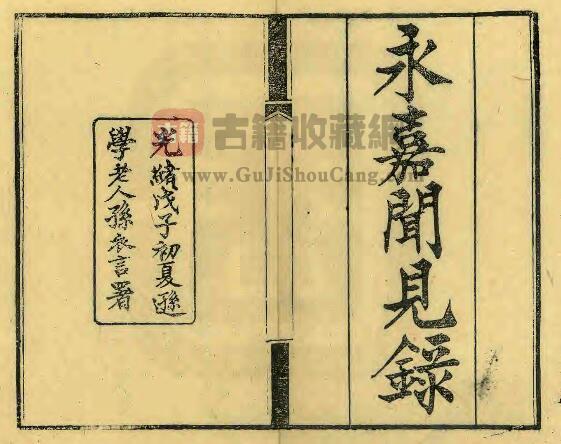 永嘉聞見錄
光緒戊子初夏遜
學老人孫衣言署
古籍收藏網
www.GuJiShouCang.com
古籍